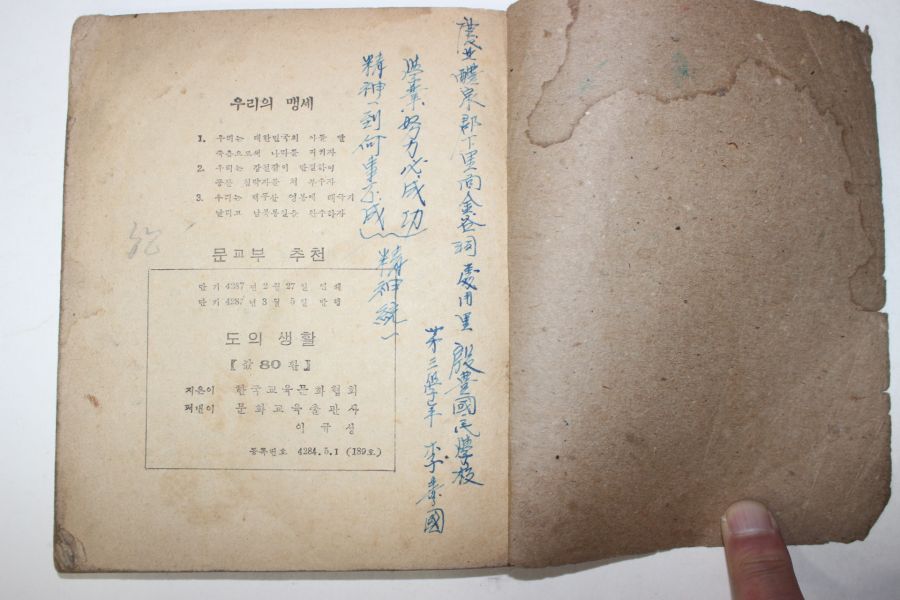 우리의 맹세
1. 우리는 대한민국의 아들 딸
죽음으로써 나라를 지키자
2. 우리는 강철같이 단결하여
공산 침략자를 쳐 부수자
3. 우리는 백두산 영봉에 태극기
날리고 남북통일을 완수하자
문교부 추천
단기 4287년 2월 27일 인쇄
단기 4287년 3월 5일 발행
도의 생활
【값 80환】
지은이 한국교육문화협회
펴낸이 문화교육출판사
이규성
등록번호 4284.5.1 (189호)
慶北醴泉郡下里面金谷洞 里 殷豊國民學校
第三學年 李 國
學業努力必成功
精神一到何事不成
精神統一